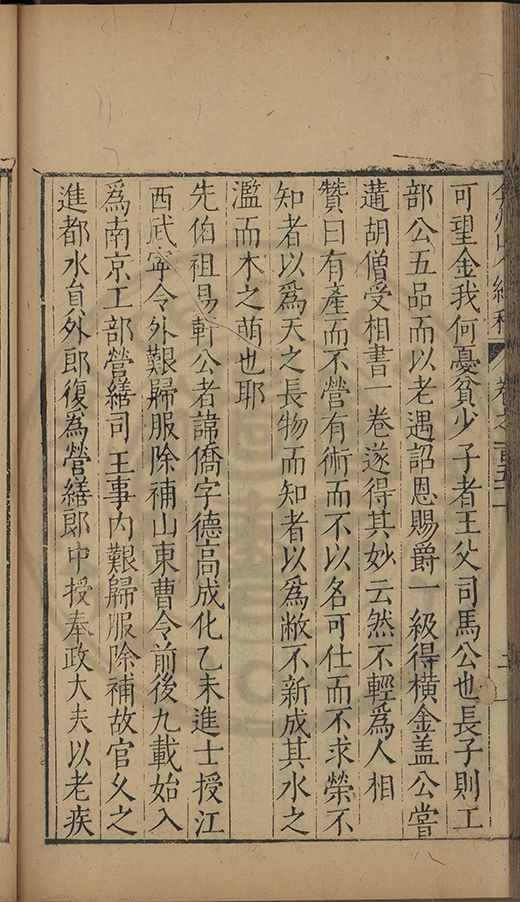 弇州山人續稿 卷之一百五十一
可望金我何憂貧少子者王父司馬公也長子則工
部公五品而以老遇詔恩賜爵一級得橫金盖公嘗
遘胡僧受相書一卷遂得其妙云然不輕爲人相
贊曰有產而不營有術而不以名可仕而不求榮不
知者以爲天之長物而知者以爲敝不新成其水之
濫而木之萌也耶
先伯祖易軒公者諱僑字德高成化乙未進士授江
西武寧令外艱歸服除補山東曹令前後九載始入
爲南京工部營繕司主事内艱歸服除補故官乆之
進都水貟外郎復爲營繕郎中授奉政大夫以老疾